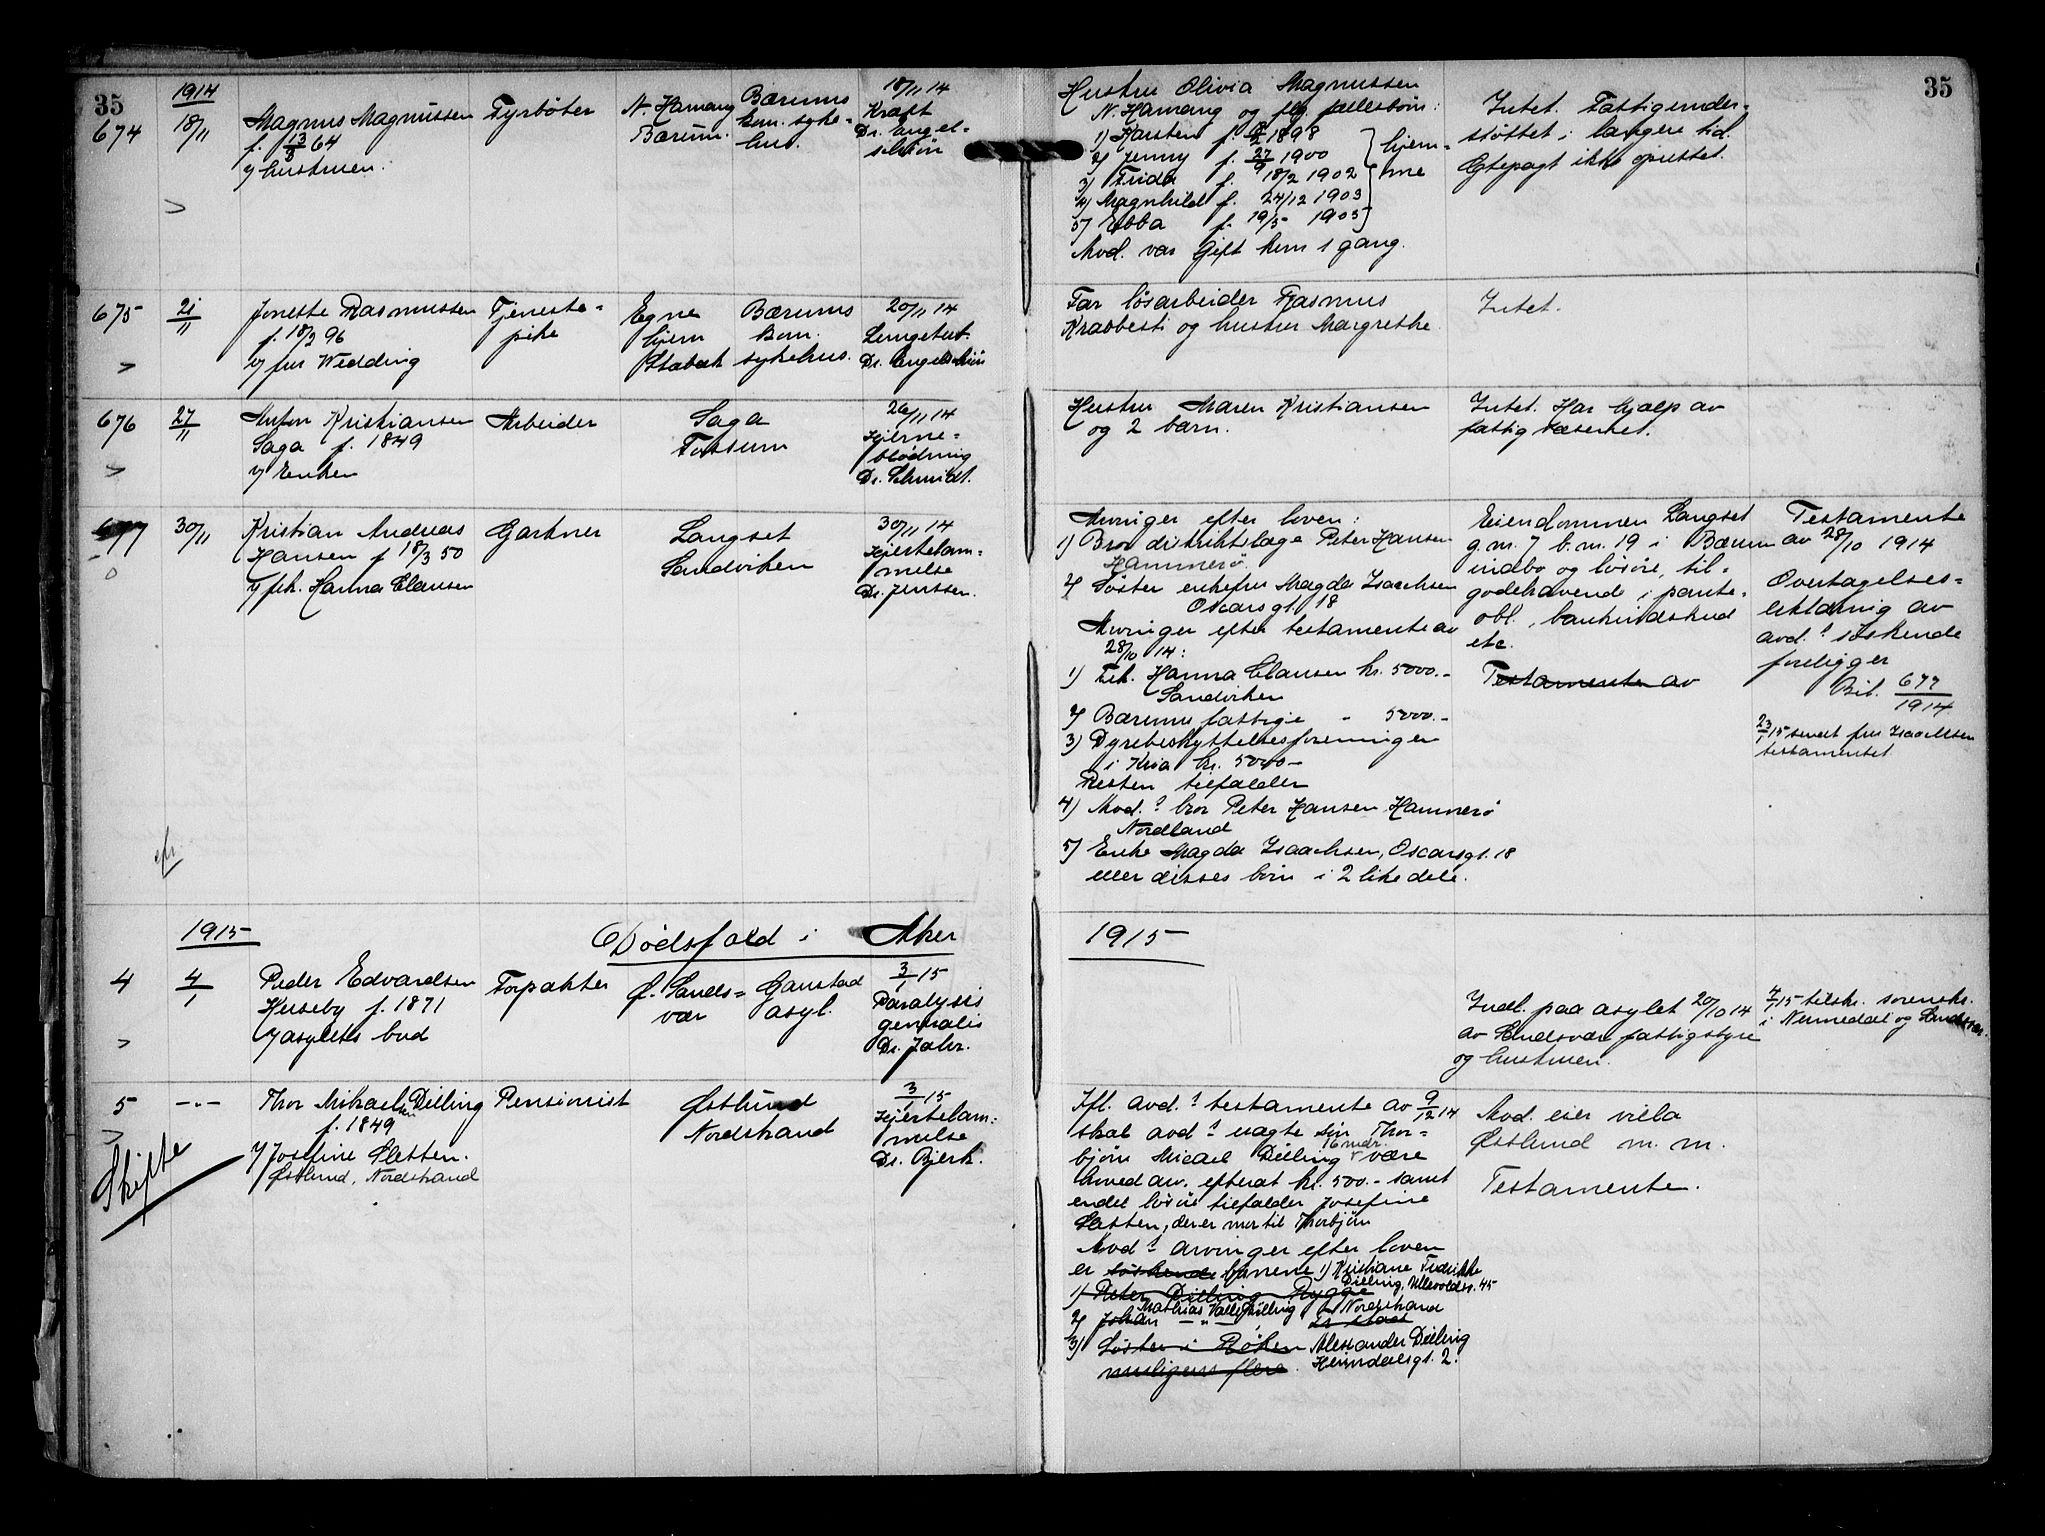 35
1914
674
18/11
Magnus Magnussen
f. 13/3 64
v/ hustruen.
Fyrbøter
N. Hamang
Bærum.
Bærums
kom. syke-
hus.
18/11 14
Kræft
Dr. Engel-
schiøn
Hustru Olivia Magnussen
N. Hamang og flg. fællesbørn:
1) Karsten f. 1898
2) Jenny f. 27/9 1900
3) Frida f. 18/2 1902
4) Magnhild f. 24/12 1903
5) Ebba f. 19/5 1905
hjem-
me
Avd. var gift kun 1 gang.
Intet. Fattigunder-
støttet i længere tid.
Egtepagt ikke oprettet.
35
675
21/11
Jenette Rasmussen
f. 18/3 96
v/ fru Wedding
Tjeneste-
pike
Egne
hjem
Stabæk
Bærums
kom.
sykehus.
20/11 14
Lungetub.
Dr. Engelschiøn
Far løsarbeider Rasmus
Krabbesti og hustru Margrethe.
Intet.
676
27/11
Anton Kristiansen
Saga f. 1849
v/ Enken
Arbeider
Saga
Fossum
26/11 14
Hjerne-
blødning
Dr. Schmidt.
Hustru Maren Kristiansen
og 2 barn.
Intet. Har hjælp av
fattigvæsenet.
677
30/11
Kristian Andreas
Hansen f. 18/3 50
v/ frk. Hanna Clausen
Gartner
Langset
Sandviken
30/11 14
Hjertelam-
melse
Dr. Jenssen.
Arvinger efter loven:
1) Bror distriktslæge Peter Hansen
Hammerø.
2) Søster enkefru Magda Isaachsen
Oscarsgt. 18
Arvinger efter testamente av
28/10 14:
1) Frk. Hanna Clausen kr. 5000.-
Sandviken
2) Bærums fattige - 5000.-
3) Dyrebeskyttelsesforeningen
i Kria kr. 5000-
Resten tilfalder
4) Avd.s bror Peter Hansen Hammerø
Nordland
5) Enke Magda Isaachsen, Oscarsgt. 18
eller disses børn i 2 like dele.
Eiendommen Langset
g.nr. 7 b.nr. 19 i Bærum
indbo og løsøre, til-
godehavende i pante-
obl., bankindskud
etc.
Testamente av
Testamente
av 28/10 1914
Overtagelses-
erklæring av
avd.s søskende
foreligger
Bil. 677/1914
23/1 15 levert fru Isaachsen
testamentet
1915
Dødsfald i Aker
1915
4
4/1
Peder Edvardsen
f. 1871
v/ asylets bud
Forpakter
Ø. Sands-
vær
Gaustad
asyl.
3/1 15
Paralysis
generalis
Dr. Jahr.
Indl. paa asylet 20/10 14
av Sandsvær fattigstyre
og hustruen.
7/1 15 tilskr. sorenskr.
i Numedal og Sandsvær.
5
-"-
Thor Mikaelsen Dilling
f. 1849
v/ Josefine Sletten.
Østlund, Nordstrand
Skifte
Pensionist
Østlund
Nordstrand
3/1 15
Hjertelam-
melse
Dr. Bjerk.
Ifl. avd.s testamente av 9/12 14
skal avd.s uegte søn Thor-
bjørn Micael Dilling 6 mdr. være
hovedarv. efterat kr. 500.- samt
endel løsøre tilfalder Josefine
Sletten, der er mor til Thorbjørn
Avd.s arvinger efter loven
er søskende barnene 1) Kristiane Fredrikke
Dilling, Ullevoldsv. 45
1) Peter Dilling Rygge
2) Johan -"- Mathias Valle Dilling Nordstrand
3) Søster i Røken Alexander Dilling
muligens flere. Heimdalsgt. 2.
Avd. eier villa
Østlund m. m.
Testamente.